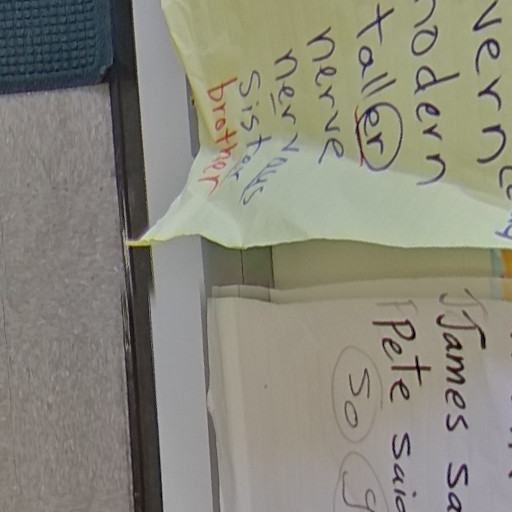 vern
modern
taller
nerve
nervous
sister
brother
James sa
Pete said
So g